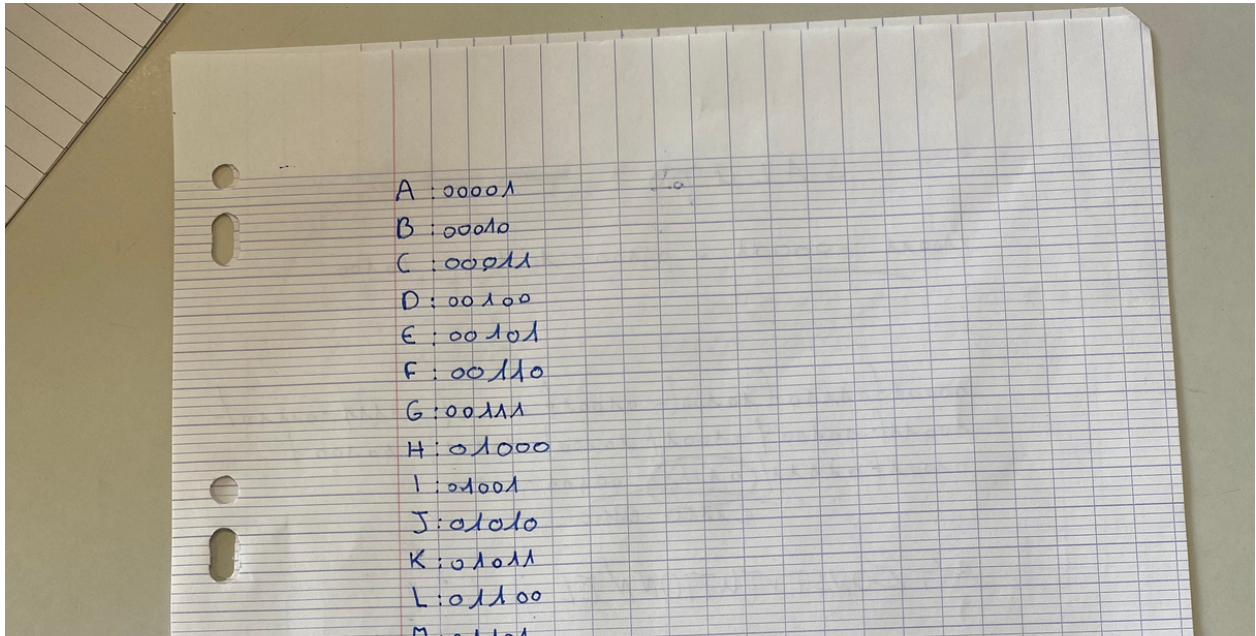 A : 00001
B : 00010
C : 00011
D : 00100
E : 00101
F : 00110
G : 00111
H : 01000
I : 01001
J : 01010
K : 01011
L : 01100
M : 01101